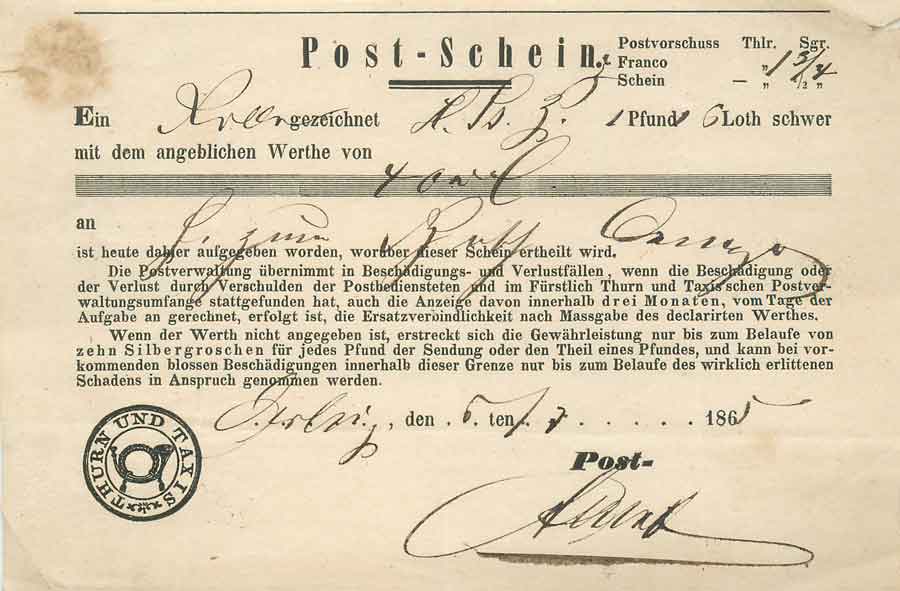 Post-Schein.
Postvorschuss Thlr. Sgr.
Franco „ 1 3/4
Schein — „ ½ „
Ein gezeichnet H. 1 Pfund 6 Loth schwer
mit dem angeblichen Werthe von
an
ist heute dahier aufgegeben worden, worüber dieser Schein ertheilt wird.
Die Postverwaltung übernimmt in Beschädigungs- und Verlustfällen, wenn die Beschädigung oder
der Verlust durch Verschulden der Postbediensteten und im Fürstlich Thurn und Taxis'schen Postver-
waltungsumfange stattgefunden hat, auch die Anzeige davon innerhalb drei Monaten, vom Tage der
Aufgabe an gerechnet, erfolgt ist, die Ersatzverbindlichkeit nach Massgabe des declarirten Werthes.
Wenn der Werth nicht angegeben ist, erstreckt sich die Gewährleistung nur bis zum Belaufe von
zehn Silbergroschen für jedes Pfund der Sendung oder den Theil eines Pfundes, und kann bei vor-
kommenden blossen Beschädigungen innerhalb dieser Grenze nur bis zum Belaufe des wirklich erlittenen
Schadens in Anspruch genommen werden.
den 5. ten 1865
THURN UND TAXIS
Post-